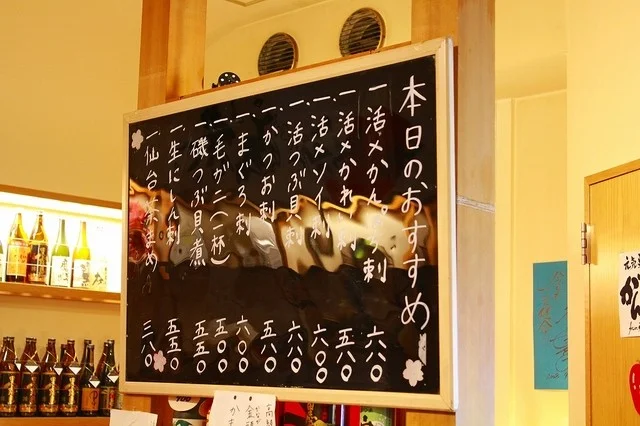 本日のおすすめ
一活〆かんぱち刺 六八〇
一活〆かれい刺 五八〇
一活〆ソイ刺 六〇〇
一活つぶ貝刺 六八〇
一かつお刺 五八〇
一まぐろ刺 六〇〇
一毛がニ(一杯) 五〇〇
一磯つぶ貝煮 五五〇
一生にしん刺 五五〇
一仙台茶まめ 三八〇